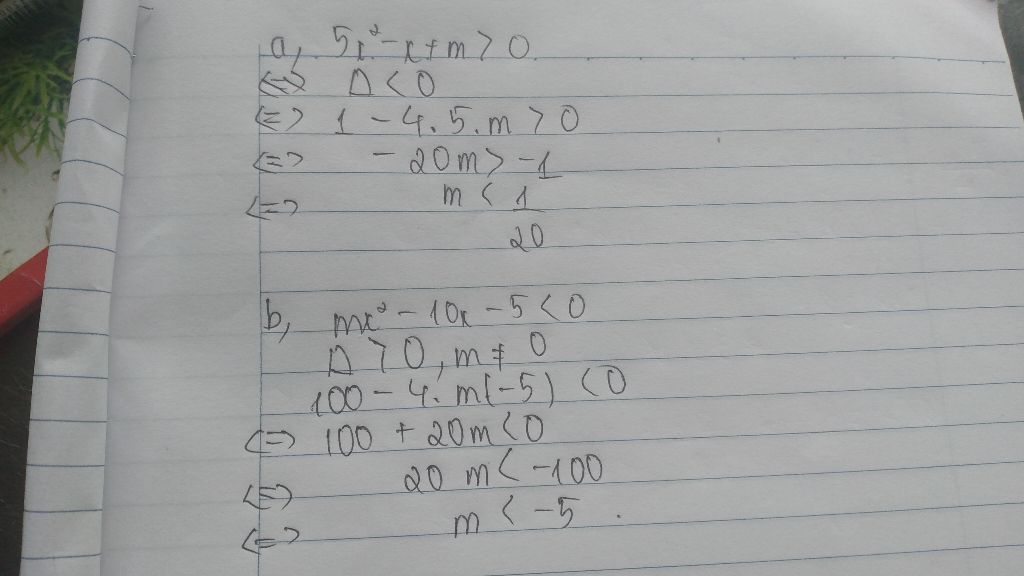 a, 5x² - x + m > 0
<=> Δ < 0
<=> 1 - 4.5.m > 0
<=> - 20m > -1
<=> m < 1
20
b, mx² - 10x - 5 < 0
Δ > 0, m ≠ 0
100 - 4. m(-5) < 0
<=> 100 + 20m < 0
<=> 20 m < -100
<=> m < -5 .